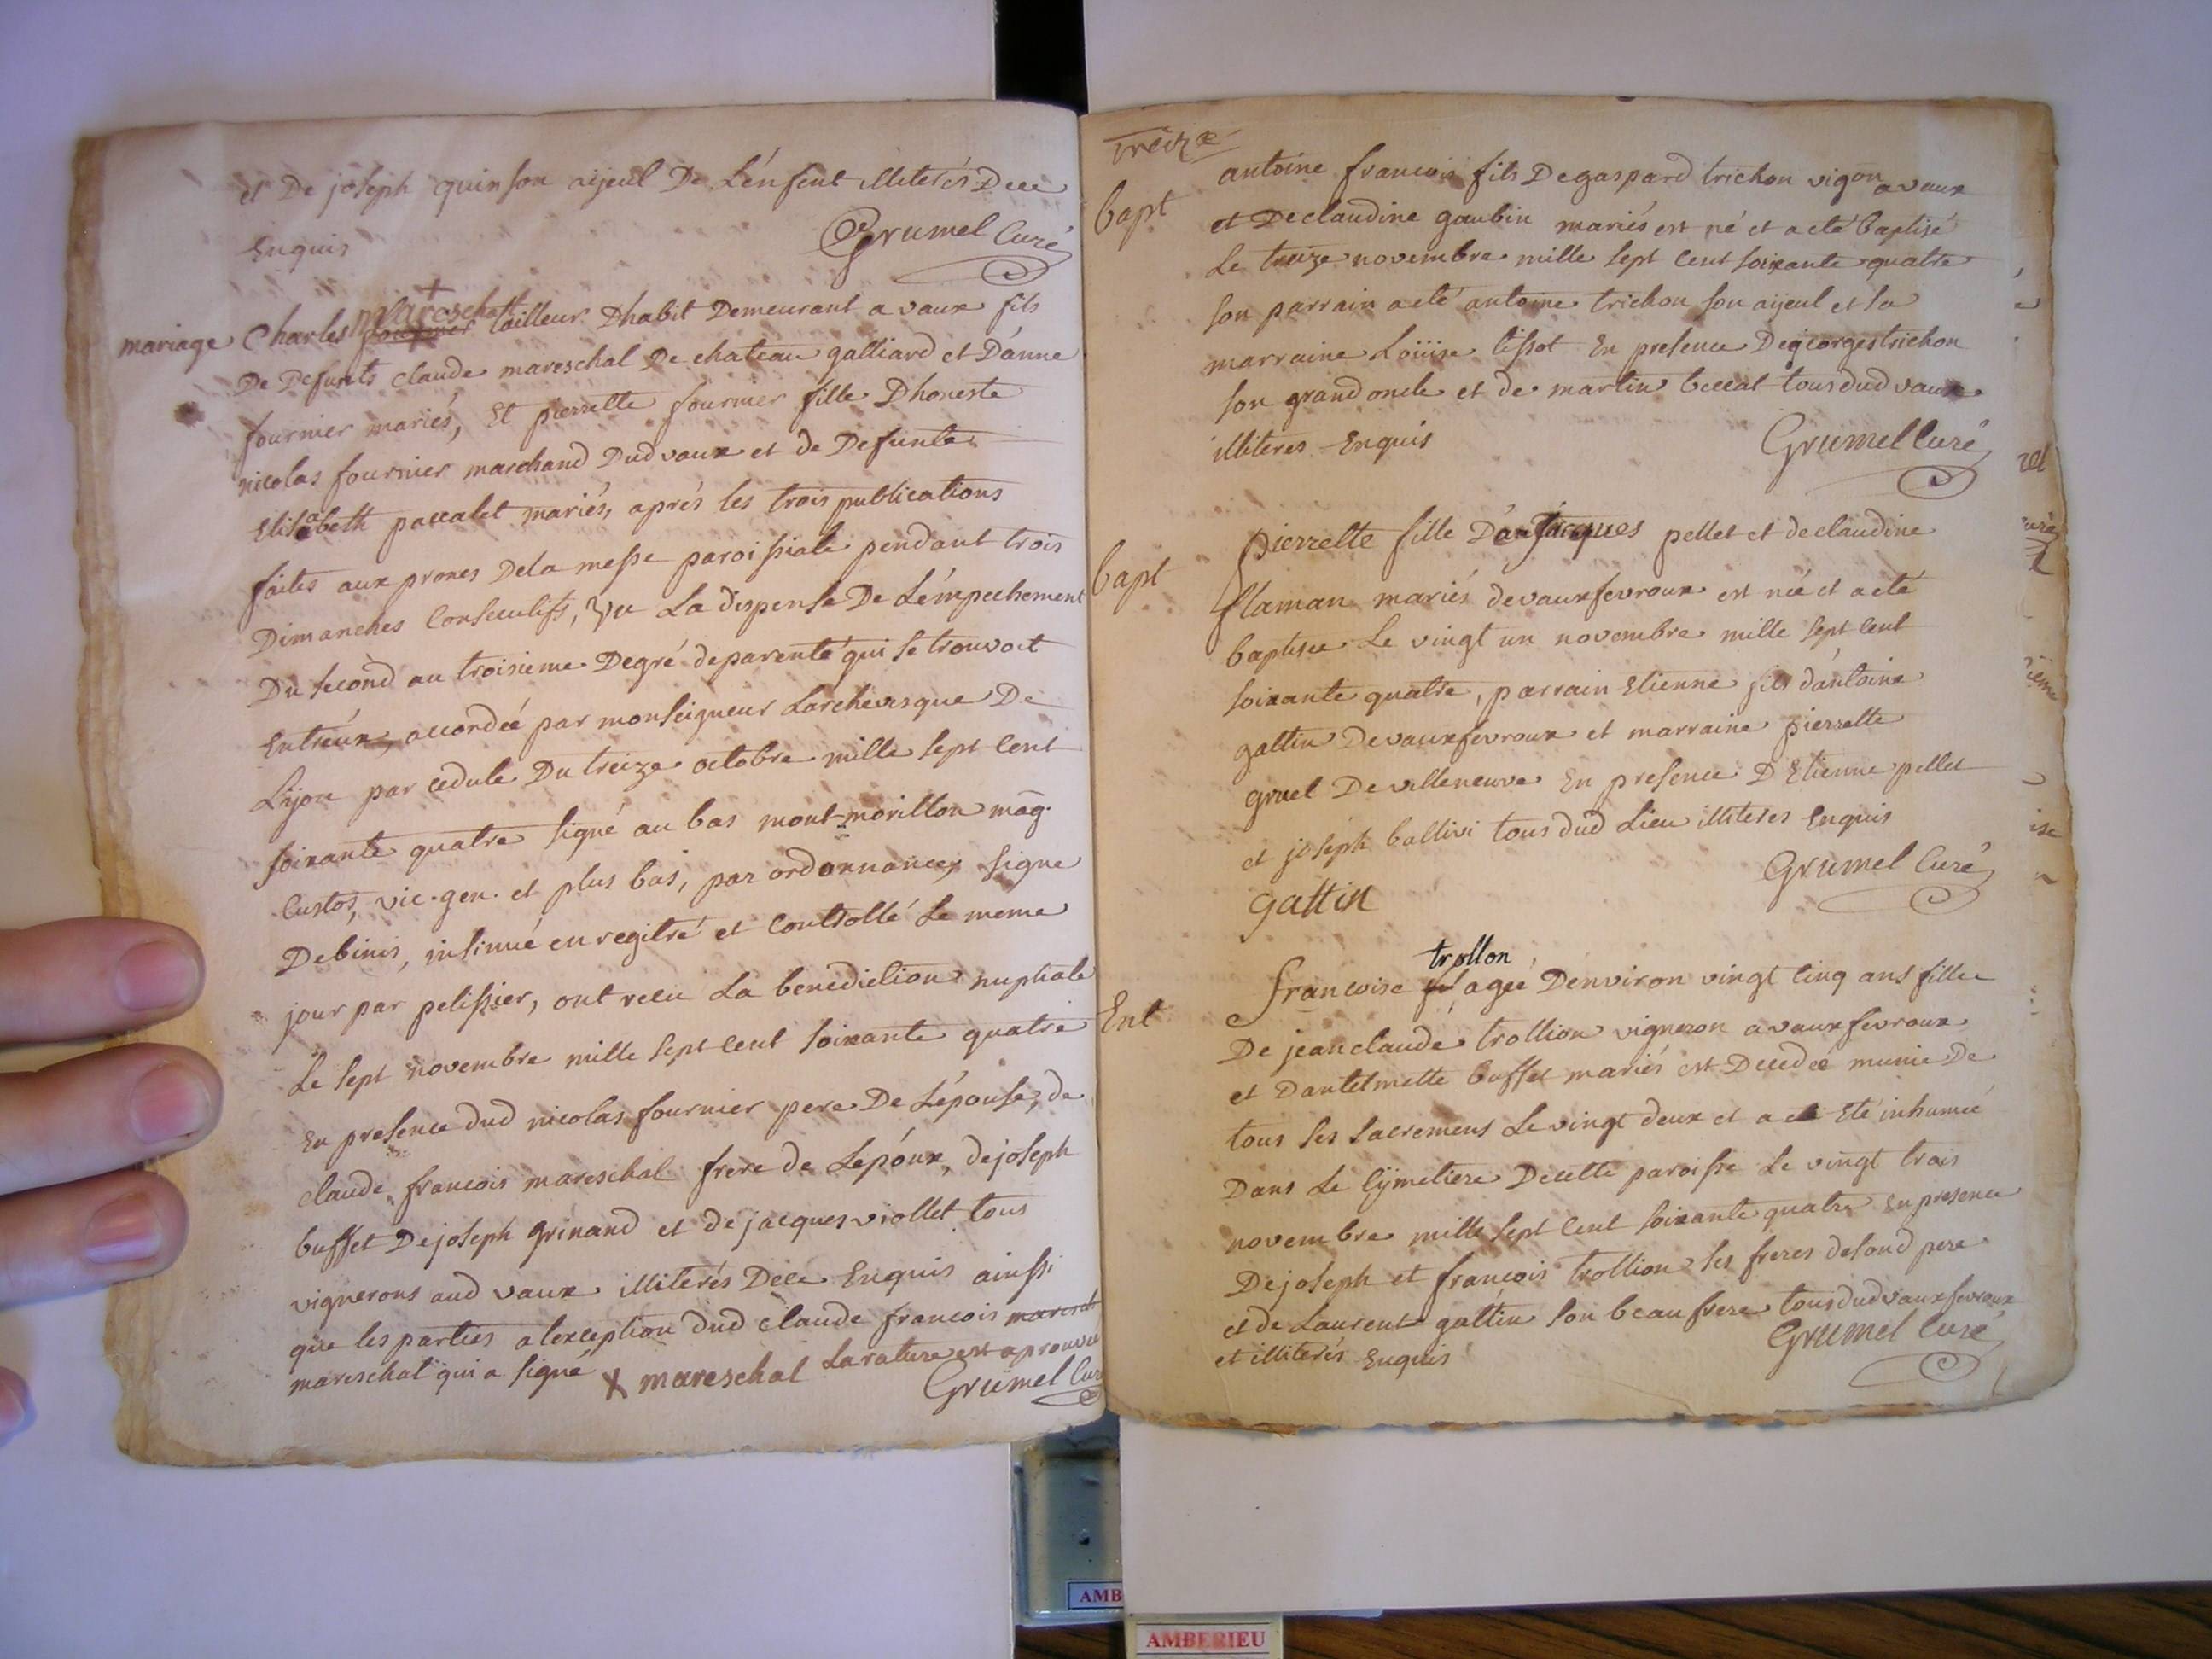 et De joseph quinson aijeul De L'énfent illiterés Dece
Enquis
Grumel Curé
mariage
Charles mareschal fournier tailleur Dhabit Demeurant a vaux fils
De Defunts claude mareschal De chateau galliard et D'anne
fournier mariés, Et pierrette fournier fille Dhoneste
nicolas fournier marchand Dud vaux et de Defunte
Elisabeth paccalet mariés, aprés les trois publications
faites aux prones Dela messe paroissiale pendant trois
Dimanches Consecutifs, Vu La dispense De L'émpechement
Du second au troisieme Degré deparenté qui se trouvoit
Entreux, accordée par monseigneur Larchevesque De
Lijon par cedule Du treize octobre mille sept cent
soixante quatre signé au bas mont-morillon mag.
Custos, vic. gen. et plus bas, par ordonnance, signe
Debinis, insinué enregitré et Controllé Le meme
jour par pelissier, ont recu La benediction nuptiale
Le sept novembre mille sept cent soixante quatre
En presence dud nicolas fournier pere De L'épouse, de
claude francois mareschal frere de Lepóux, dejoseph
buffet Dejoseph grinand et dejacques viollet tous
vignerons aud vaux illiterés Dece Enquis ainssi
que les parties alexception dud claude francois maresch
mareschal qui a signé X mareschal La rature est aprouvée
Grumel Curé
treize
bapt
antoine francois fils Degaspard trichon vigon a vaux
et Declaudine goubin mariés est né et a eté baptisé
Le treize novembre mille sept cent soixante quatre
son parrain a eté antoine trichon son aijeul et sa
marraine Loüise tissot En presence Degeorges trichon
son grand oncle et de martin beccat tous dud vaux
illiteres Enquis
Grumel Curé
bapt
pierrette fille D'anjacques pellet et declaudine
flaman mariés devauxfevroux est née et a eté
baptisee Le vingt un novembre mille sept cent
soixante quatre, parrain Etienne fils d'antoine
gattin Devauxfevroux et marraine pierrette
gruel De villeneuve En presence D'Etienne pellet
et joseph ballivi tous dud Lieu illiteres Enquis
Grumel Curé
gattin
Ent
trollon
francoise agée Denviron vingt cinq ans fille
De jeanclaude trollion vigneron a vauxfevroux
et Dantelmette buffet mariés est Decedeé munie De
tous ses sacremens Le vingt deux et a eté Eté inhumeé
Dans Le Cÿmetiere Decette paroisse Le vingt trois
novembre mille sept cent soixante quatre En presence
Dejoseph et francois trollion ses freres desond pere
et de Laurent gattin son beaufrere tous dud vauxfevroux
et illiterés Enquis
Grumel Curé
AMB
AMBERIEU